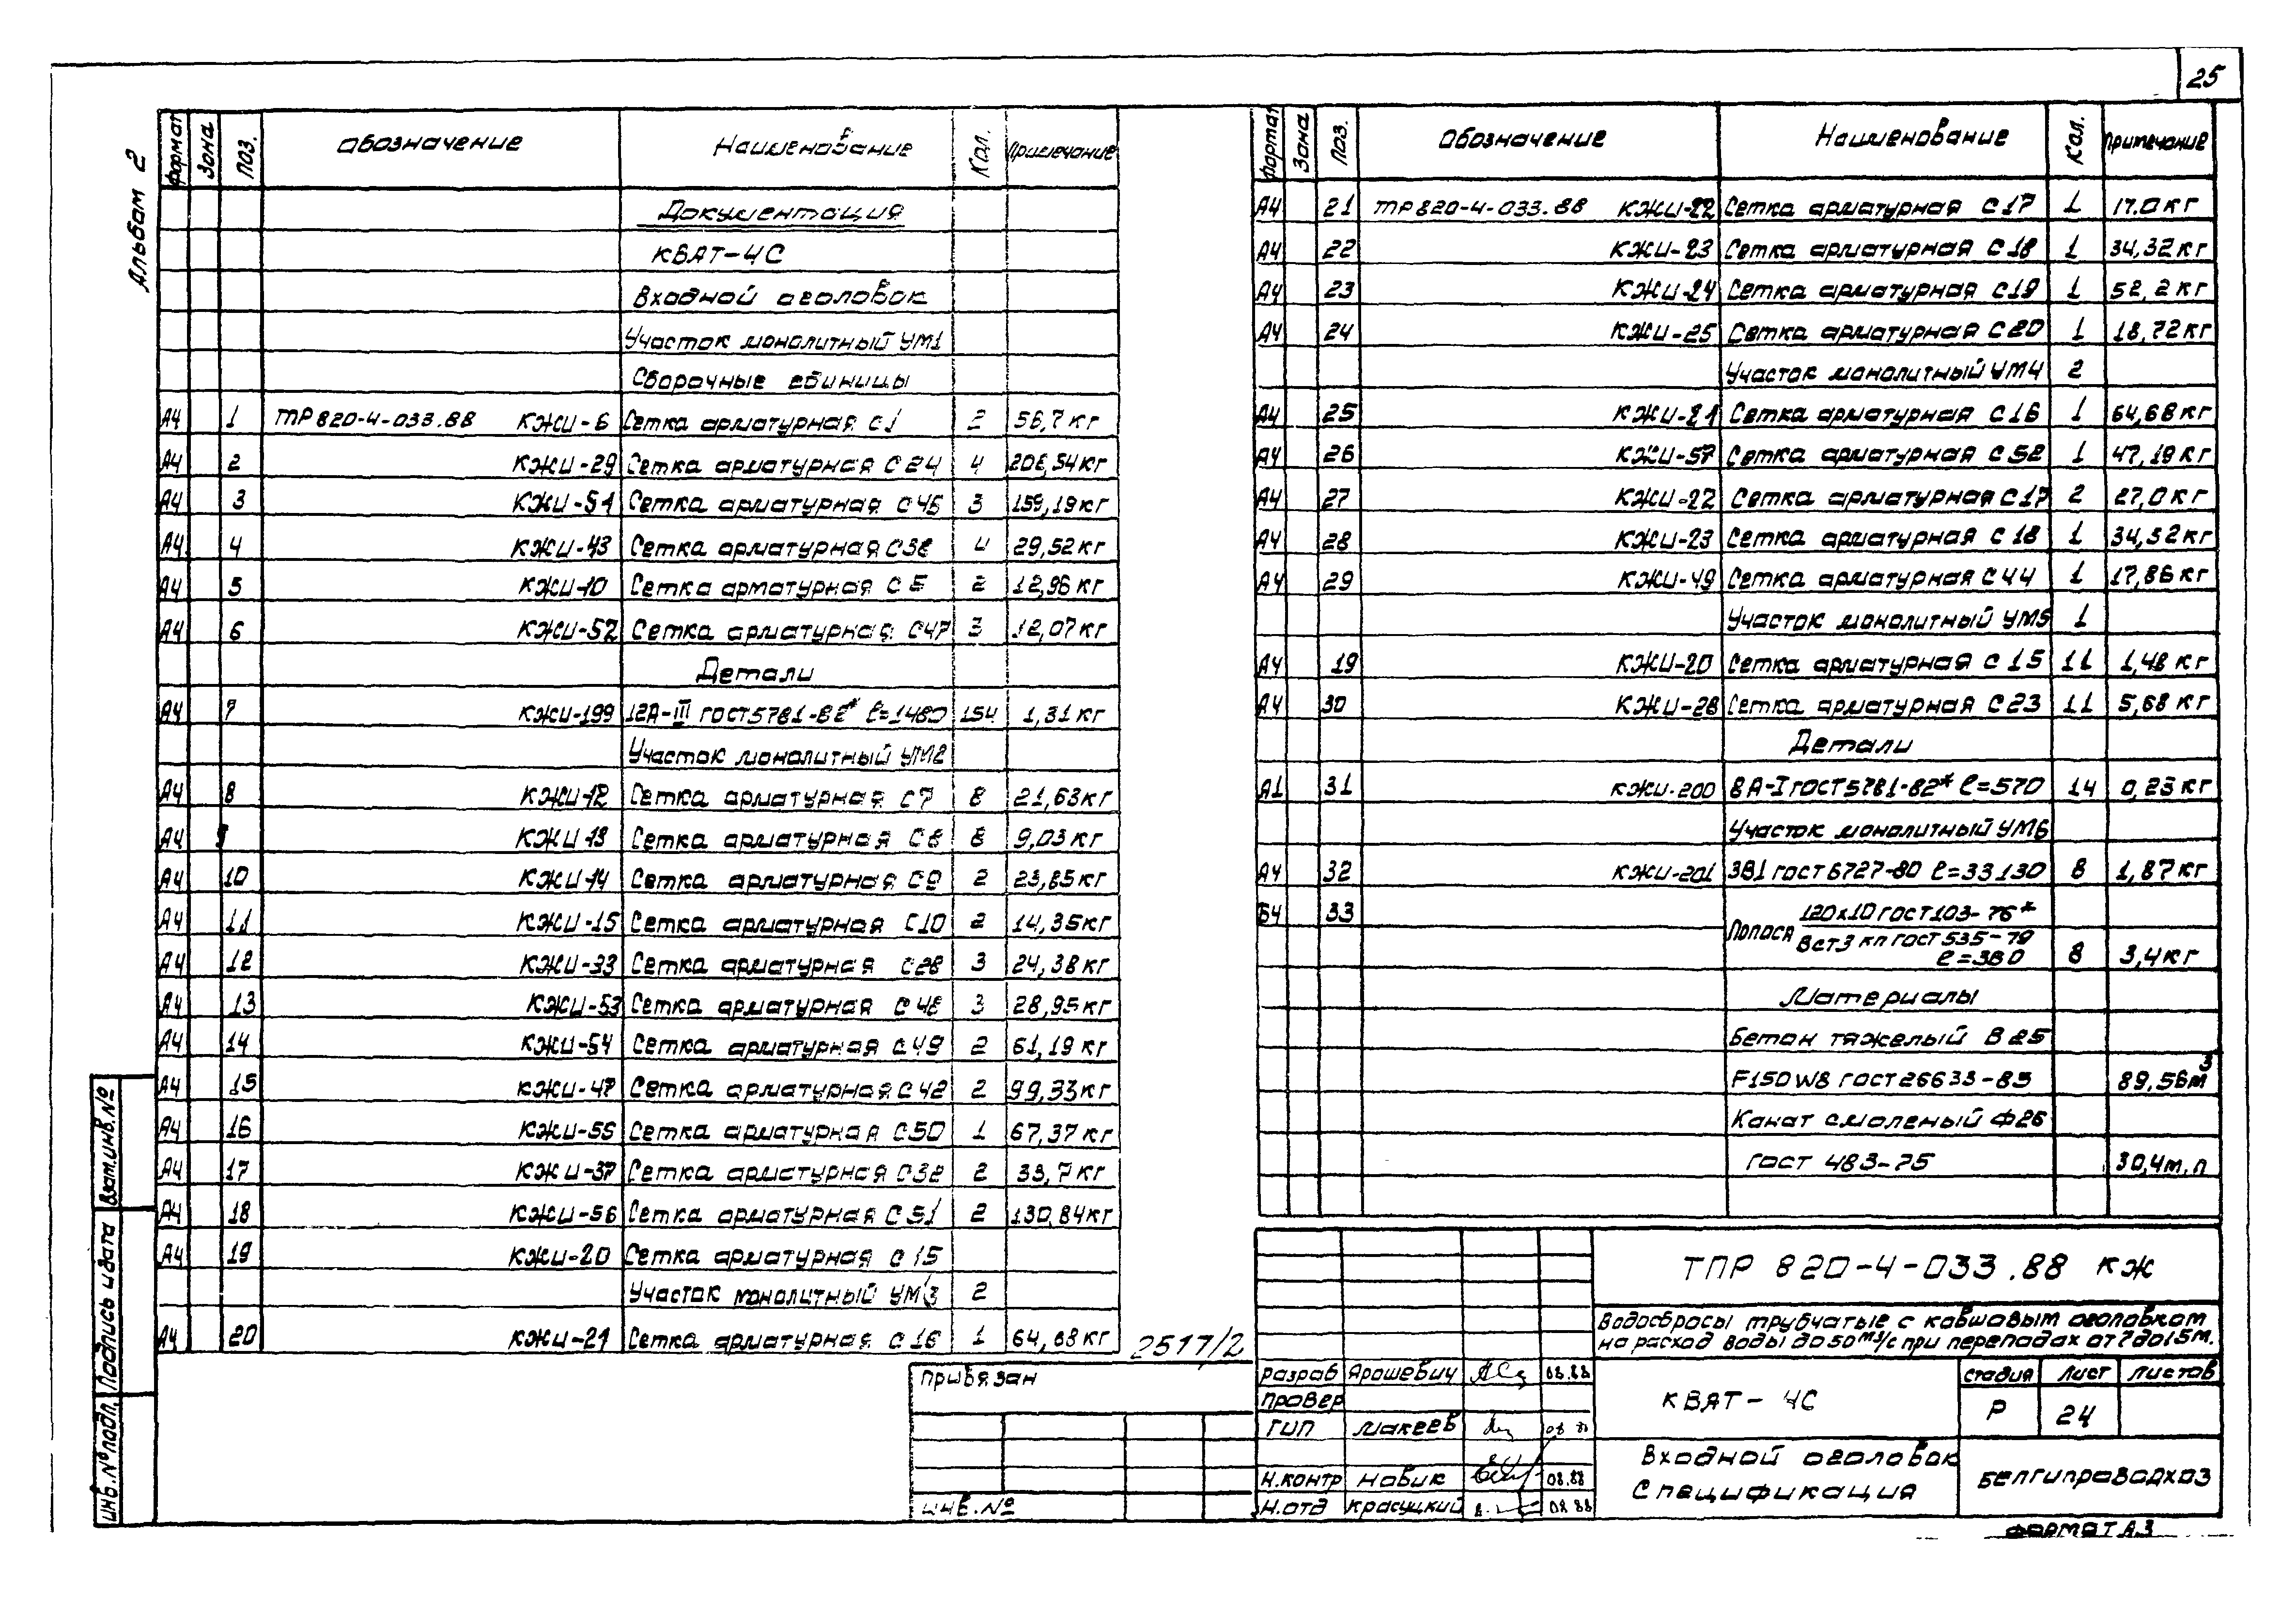 25
Альбом 2
Формат Зона Поз. Обозначение Наименование Кол. Примечание
Документация
КВАТ-4С
Входной оголовок
Участок монолитный УМ1
Сборочные единицы
А4 1 ТР 820-4-033.88 КЖИ-6 Сетка арматурная С1 2 56,7 кг
А4 2 КЖИ-29 Сетка арматурная С24 4 208,54 кг
А4 3 КЖИ-51 Сетка арматурная С46 3 159,19 кг
А4 4 КЖИ-43 Сетка арматурная С38 4 29,52 кг
А4 5 КЖИ-10 Сетка арматурная С5 2 12,96 кг
А4 6 КЖИ-52 Сетка арматурная С47 3 12,07 кг
Детали
А4 7 КЖИ-199 12А-III ГОСТ5781-82* ℓ=1480 154 1,31 кг
Участок монолитный УМ2
А4 8 КЖИ-12 Сетка арматурная С7 8 21,63 кг
А4 9 КЖИ 13 Сетка арматурная С8 8 9,03 кг
А4 10 КЖИ-14 Сетка арматурная С9 2 23,85 кг
А4 11 КЖИ-15 Сетка арматурная С10 2 14,35 кг
А4 12 КЖИ-33 Сетка арматурная С28 3 24,38 кг
А4 13 КЖИ-53 Сетка арматурная С48 3 28,95 кг
А4 14 КЖИ-54 Сетка арматурная С49 2 61,19 кг
А4 15 КЖИ-47 Сетка арматурная С42 2 99,33 кг
А4 16 КЖИ-55 Сетка арматурная С50 1 67,37 кг
А4 17 КЖИ-37 Сетка арматурная С32 2 33,7 кг
А4 18 КЖИ-56 Сетка арматурная С51 2 130,84 кг
А4 19 КЖИ-20 Сетка арматурная С15
Участок монолитный УМ3 2
А4 20 КЖИ-21 Сетка арматурная С16 1 64,68 кг
Формат Зона Поз. Обозначение Наименование Кол. Примечание
А4 21 ТР 820-4-033.88 КЖИ-22 Сетка арматурная С17 1 17.0 кг
А4 22 КЖИ-23 Сетка арматурная С18 1 34,32 кг
А4 23 КЖИ-24 Сетка арматурная С19 1 52,2 кг
А4 24 КЖИ-25 Сетка арматурная С20 1 18,72 кг
Участок монолитный УМ4 2
А4 25 КЖИ-21 Сетка арматурная С16 1 64,68 кг
А4 26 КЖИ-57 Сетка арматурная С52 1 47,19 кг
А4 27 КЖИ-22 Сетка арматурная С17 2 27,0 кг
А4 28 КЖИ-23 Сетка арматурная С18 1 34,32 кг
А4 29 КЖИ-49 Сетка арматурная С44 1 17,86 кг
Участок монолитный УМ5 1
А4 19 КЖИ-20 Сетка арматурная С15 11 1,48 кг
А4 30 КЖИ-28 Сетка арматурная С23 11 5,68 кг
Детали
А1 31 КЖИ-200 8А-I ГОСТ5781-82* ℓ=570 14 0,23 кг
Участок монолитный УМ6
А4 32 КЖИ-201 3В1 ГОСТ6727-80 ℓ=33130 8 1,87 кг
Б4 33 120х10 ГОСТ103-76*
Полоса Вст3 кп ГОСТ 535-79
ℓ=380 8 3,4 кг
Материалы
Бетон тяжелый В25
F150 W8 ГОСТ26633-85 89,56 м³
Канат смоленый Ф26
ГОСТ 483-75 30,4 м.п
2517/2
Привязан
Инв.№
Взам.инв.№
Подпись и дата
Инв.№ подл.
ТПР 820-4-033.88 КЖ
Водосбросы трубчатые с ковшовым оголовком
на расход воды до 50 м³/с при перепадах от 7 до 15 м.
Разраб Ярошевич 08.88
Провер
ГИП Макеев 08 88
Н.контр Новик 08.88
Н.отд Красуцкий 08 88
КВАТ-4С
Стадия Лист Листов
Р 24
Входной оголовок
Спецификация
Белгипроводхоз
Формат А3